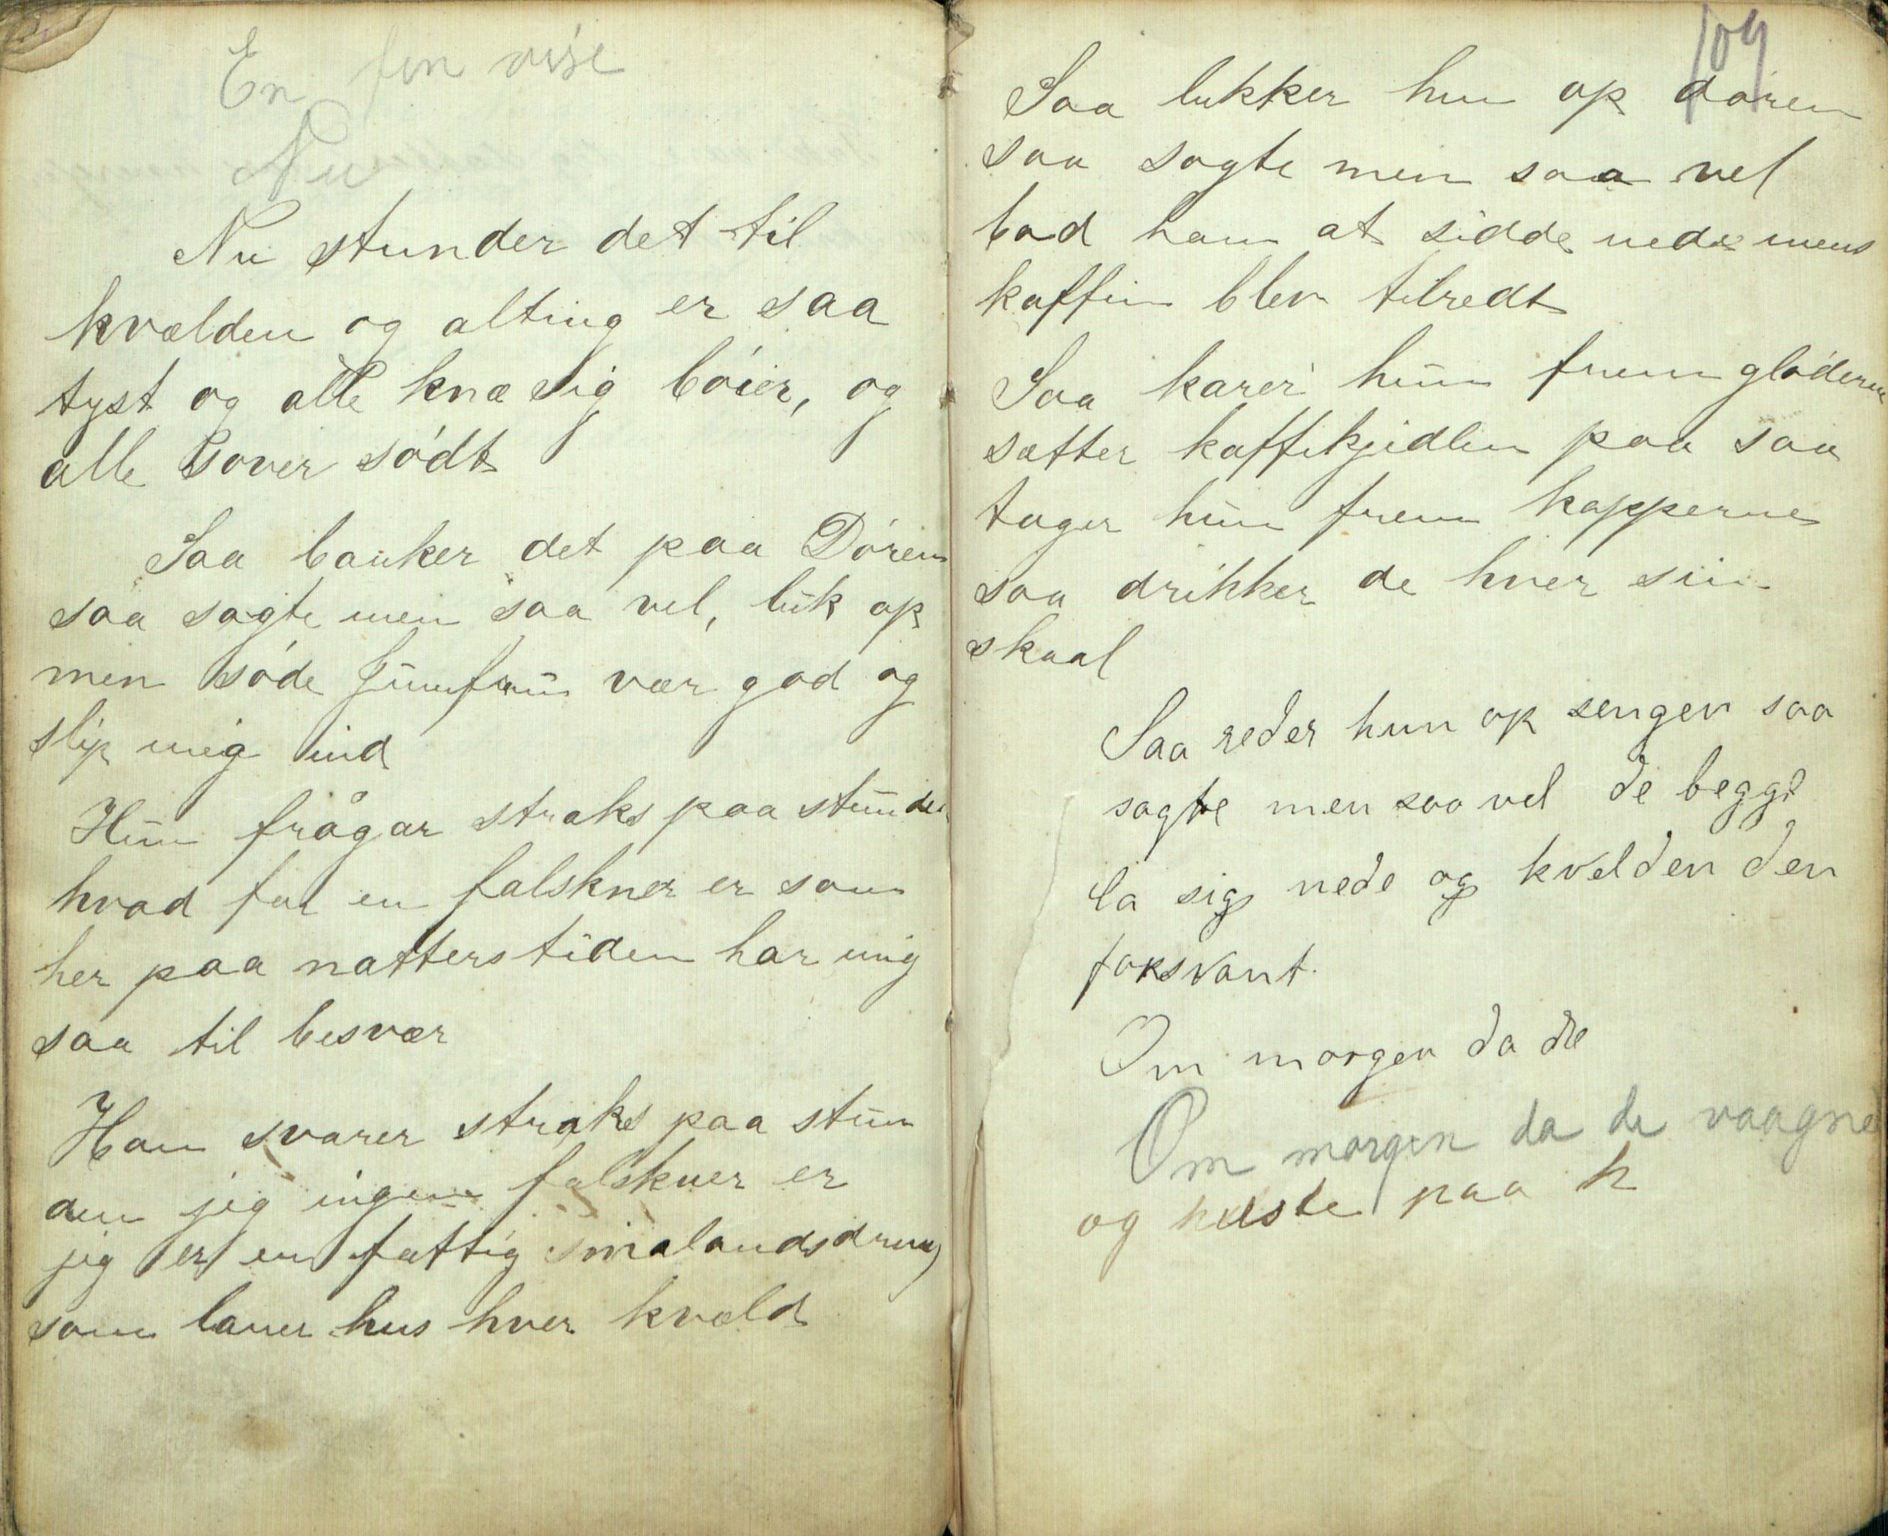 En fin vise
Nu
Nu stunder det til
kvælden og alting er saa
tyst og alle knæ sig bóier, og
alle sover sódt
Saa banker det paa Dóren
saa sagte men saa vel, luk op
min sóde Jumfru vær god og
slip mig ind
Hun frågar straks paa stunden
hvad for en falskner er som
her paa natters tiden har mig
saa til besvær
Han svarer straks paa stun
den jeg ingen falskner er
jeg er en fattig smalandsdreng
som laner hus hver kvæld
109
Saa lukker hun op dóren
saa sagte men saa vel
bad ham at sidde nede mens
kaffin blev tilredt
Saa karer hun frem glóderne
sætter kaffikjidlen paa saa
tager hun frem kopperne
saa drikker de hver sin
skaal
Saa reder hun op sengen saa
sagte men saa vel de begge
la sig nede og kvelden den
forsvant.
Om morgen da de
Om morgen da de vaagne
og huste paa h